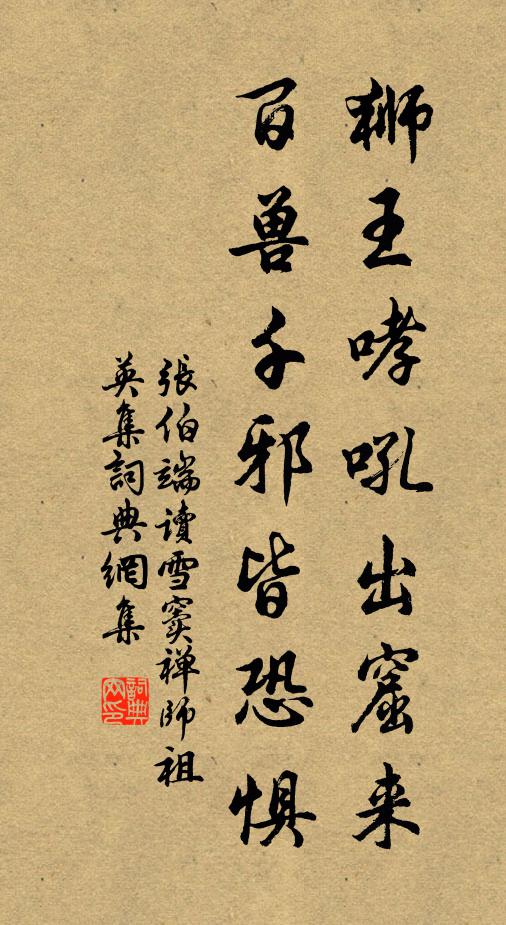 狮王哮吼出窟来
百兽千邪皆恐惧
張伯端读雪窦禅师祖
英集詞典網集
詞典
网印